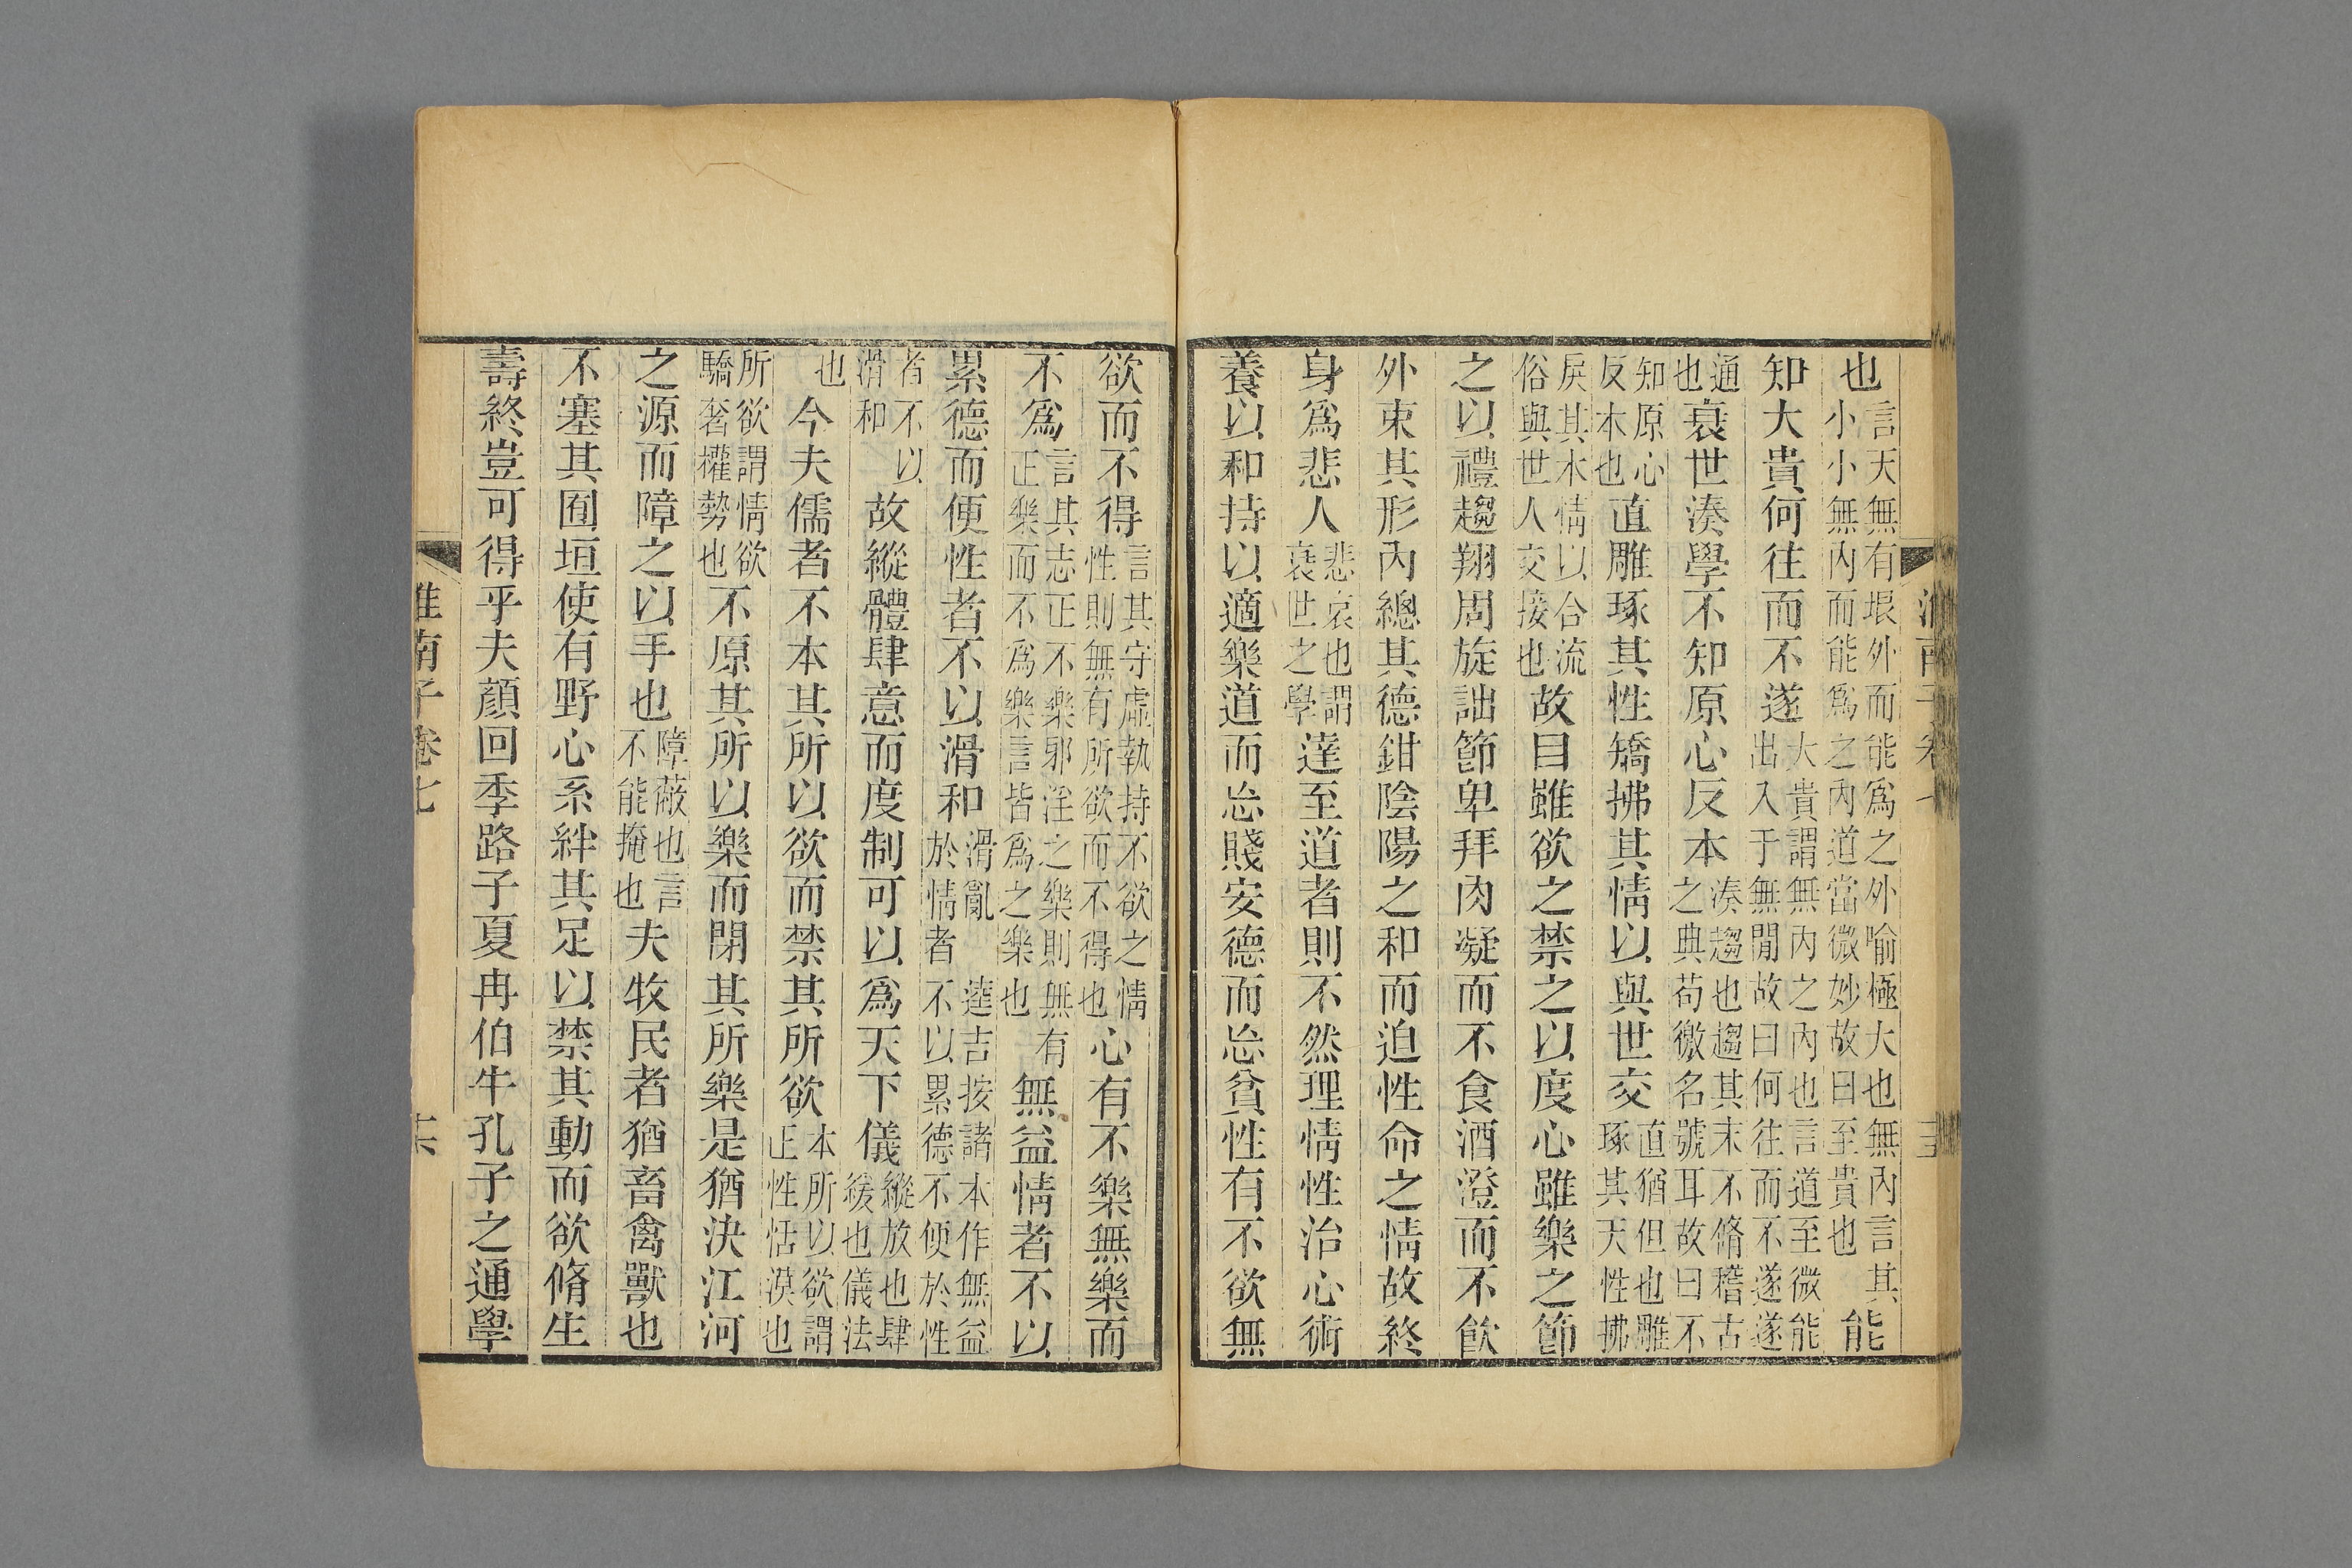 也言天無有垠外而能爲之外喻極大也無內言其小小無內而能爲之內道當微妙故曰至貴也能
知大貴何往而不遂大貴謂無內之內也言道至微能出入于無閒故曰何往而不遂遂
通也衰世湊學不知原心反本湊趨也趨其末不脩稽古之典苟徼名號耳故曰不
知原心反本也直雕琢其性矯拂其情以與世交直猶但也雕琢其天性拂
戾其本情以合流俗與世人交接也故目雖欲之禁之以度心雖樂之節
之以禮趨翔周旋詘節卑拜肉凝而不食酒澄而不飮
外束其形內總其德鉗陰陽之和而迫性命之情故終
身爲悲人悲哀也謂衰世之學達至道者則不然理情性治心術
養以和持以適樂道而忘賤安德而忘貧性有不欲無
欲而不得言其守虛執持不欲之情性則無有所欲而不得也心有不樂無樂而
不爲言其志正不樂邪淫之樂則無有正樂而不爲樂言皆爲之樂也無益情者不以
累德而便性者不以滑和滑亂於情者逵吉按諸本作無益不以累德不便於性
者不以滑和故縱體肆意而度制可以爲天下儀縱放也肆緩也儀法
也今夫儒者不本其所以欲而禁其所欲本所以欲謂正性恬漠也
所欲謂情欲驕奢權勢也不原其所以樂而閉其所樂是猶決江河
之源而障之以手也障蔽也言不能掩也夫牧民者猶畜禽獸也
不塞其囿垣使有野心系絆其足以禁其動而欲脩生
壽終豈可得乎夫顏回季路子夏冉伯牛孔子之通學
淮南子卷七